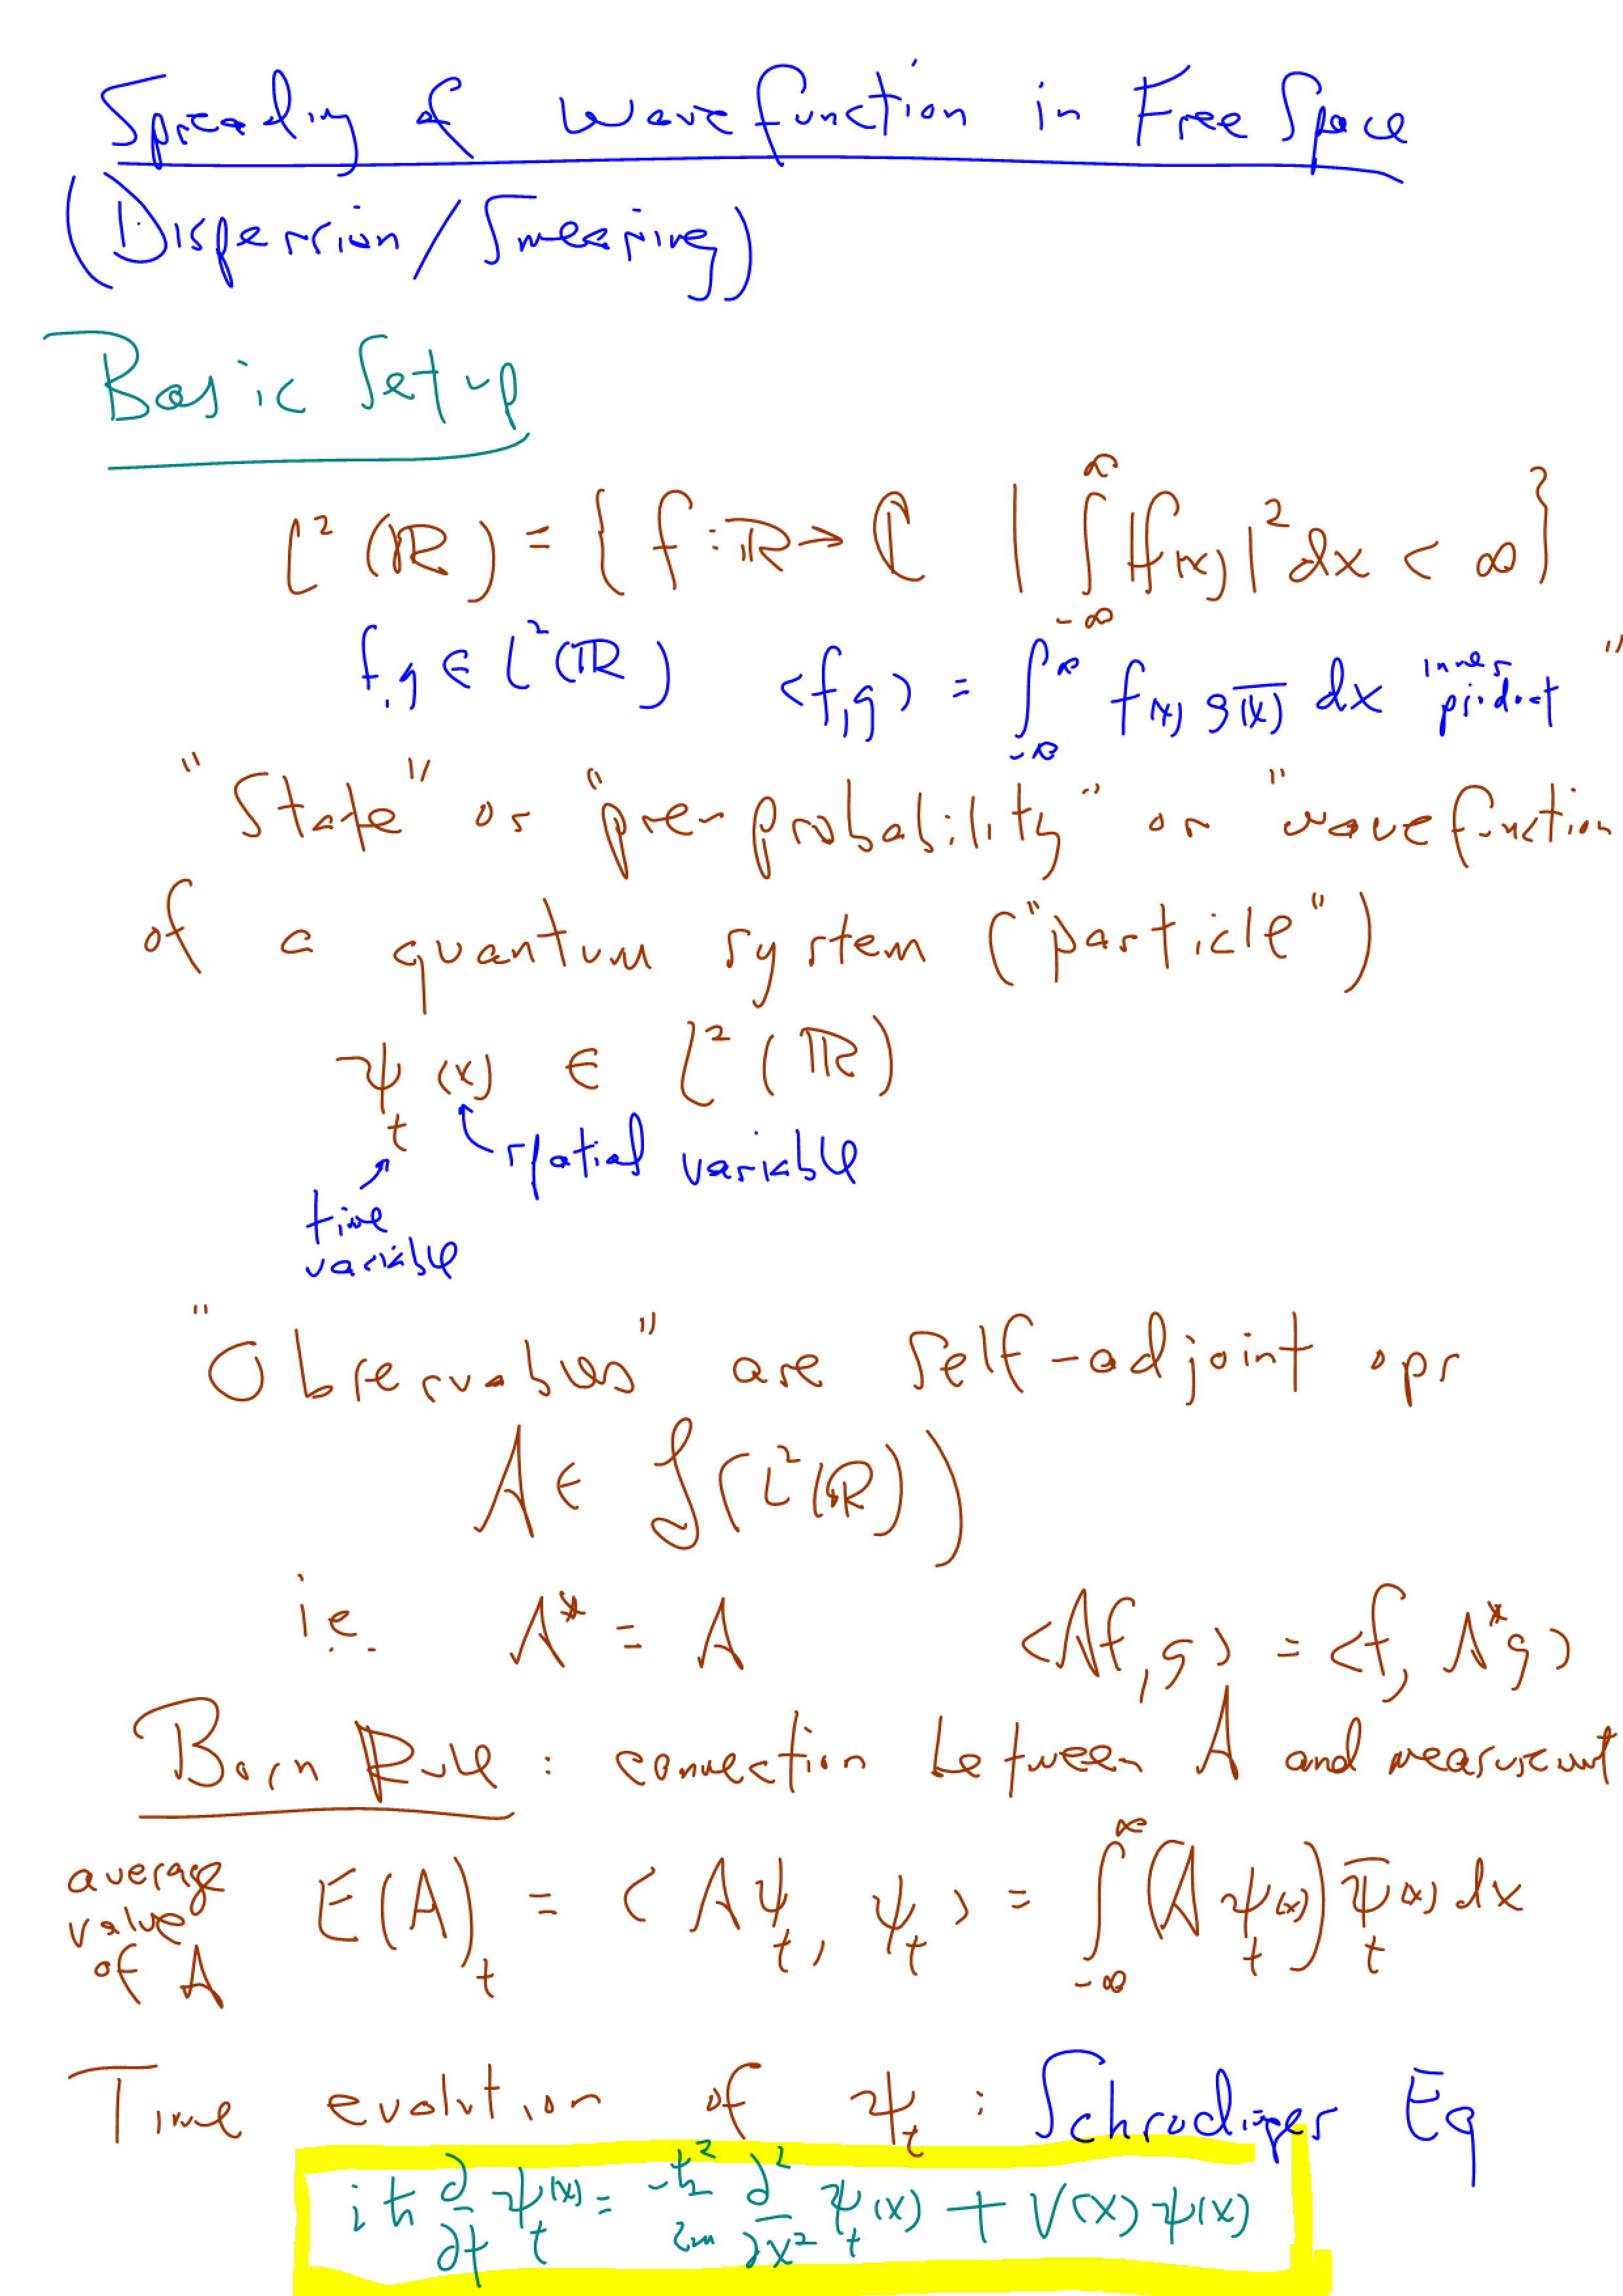 Spreading of wavefunction in Free Space
(Dispersion/Smearing)
Basic Setup
L²(ℝ) = { f : ℝ → ℂ | ∫_{-∞}^{∞} |f(x)|² dx < ∞ }
f, g ∈ L²(ℝ) <f, g> = ∫_{-∞}^{∞} f(x) \overline{g(x)} dx inner product
"State" or "pre-probability" or "wavefunction"
of a quantum system ("particle")
ψ_t(x) ∈ L²(ℝ)
spatial variable
time
variable
"Observables" are self-adjoint opr
A ∈ 𝒮(L²(ℝ))
i.e. A* = A <Af, g> = <f, A*g>
Born Rule : connection between A and measurement
average value of A E(A)_t = <Aψ_t, ψ_t> = ∫_{-∞}^{∞} (Aψ_t(x)) \overline{ψ}_t(x) dx
Time evolution of ψ_t : Schrodinger Eq
iħ ∂/∂t ψ_t(x) = -ħ²/2m ∂²/∂x² ψ_t(x) + V(x) ψ(x)